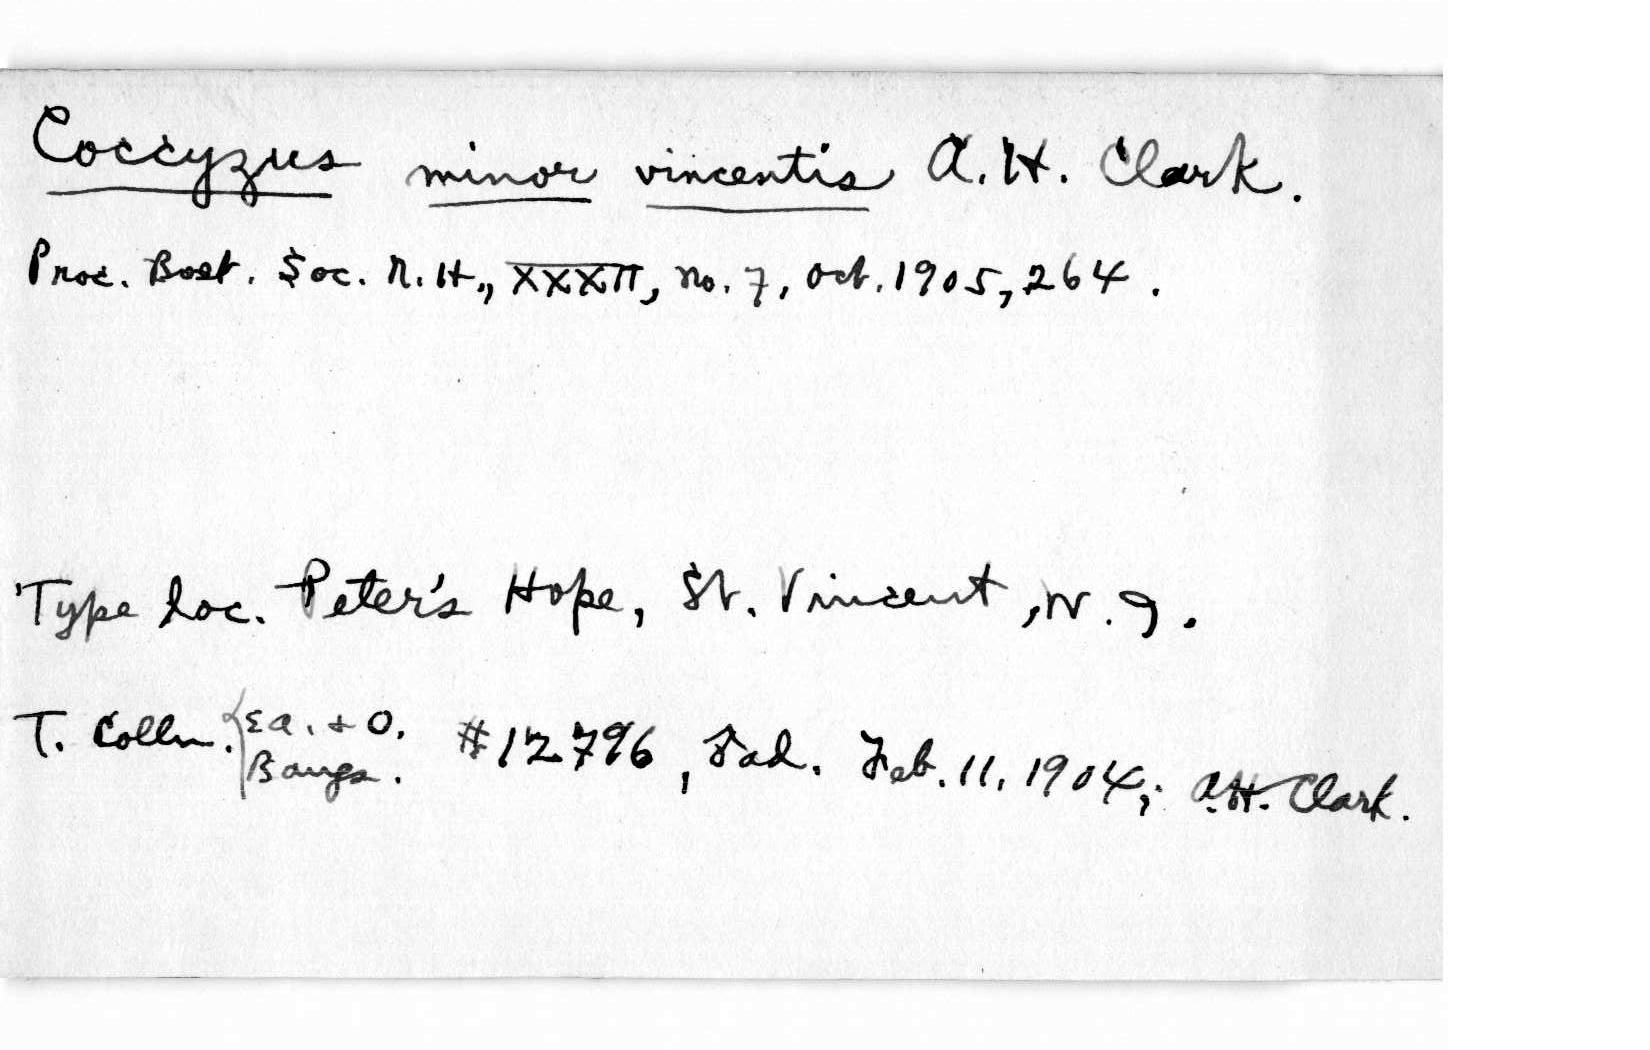 Coccyzus minor vincentis A. H. Clark.
Proc. Bost. Soc. N. H., XXXII, No. 7, Oct. 1905, 264.
Type loc. Peter's Hope, St. Vincent, W. I.
T. Colln. {E. A. + O. Bangs. #12796, ad. Feb. 11, 1904; A. H. Clark.